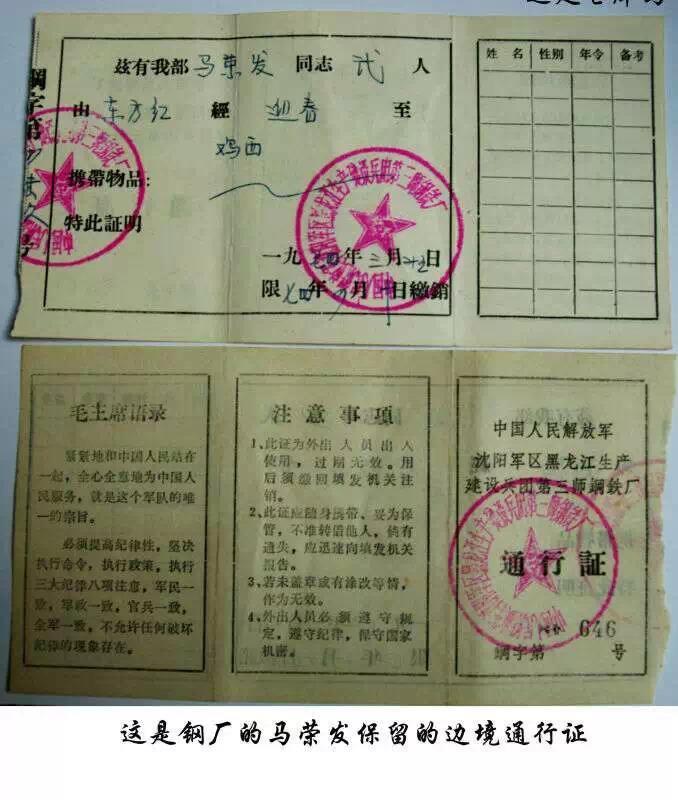 鋼字第
姓名 性别 年令 备考
兹有我部 马荣发 同志 弍 人
由 东方红 經 迎春 至
鸡西
携帶物品:
特此証明
一九七四年三月廿五日
限七四年 月 日缴銷
毛主席语录
紧紧地和中国人民站在
一起，全心全意地为中国人
民服务，就是这个军队的唯
一的宗旨。
必须提高纪律性，坚决
执行命令，执行政策，执行
三大纪律八项注意，军民一
致，军政一致，官兵一致，
全军一致，不允许任何破坏
纪律的现象存在。
注意事項
1、此证为外出人员出入
使用，过期无效。用
后须缴回填发机关注
销。
2、此证应随身携带，妥为保
管，不准转借他人，倘有
遗失，应迅速向填发机关
报告。
3、若未盖章或有涂改等情，
作为无效。
4、外出人员必须遵守规
定，遵守纪律，保守国家
机密。
中国人民解放军
沈阳军区黑龙江生产
建设兵团第三师鋼鉄厂
通行証
646
鋼字第 号
这是钢厂的马荣发保留的边境通行证